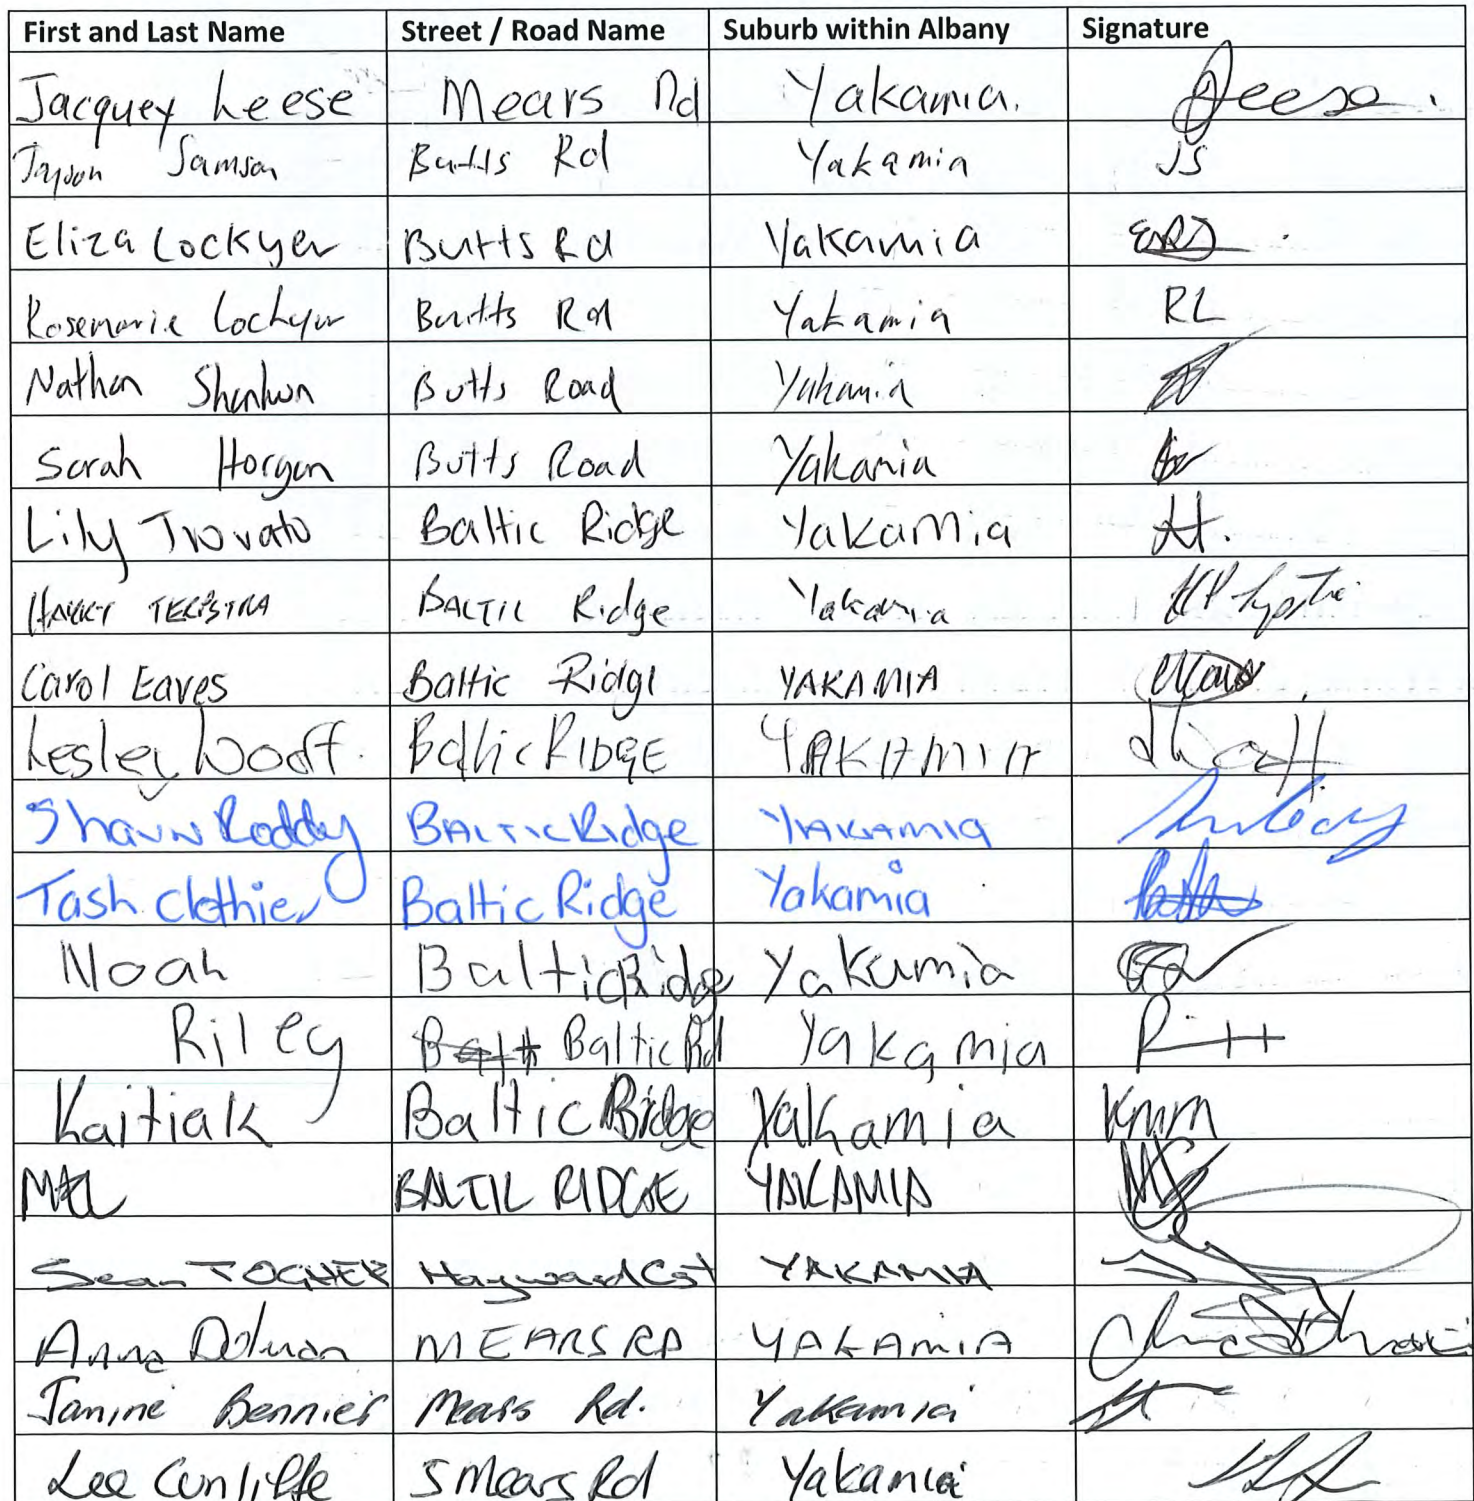 First and Last Name Street / Road Name Suburb within Albany Signature
Jacquey Leese Mears Rd Yakamia. Leese.
Jayson Samson Butts Rd Yakamia JS
Eliza Lockyer Butts Rd Yakamia
Rosemarie Lockyer Butts Rd Yakamia RL
Nathan Butts Road Yakamia
Sarah Horgan Butts Road Yakamia
Lily Trovato Baltic Ridge Yakamia
TERPSTRA BALTIC Ridge Yakamia
Carol Eaves Baltic Ridge YAKAMIA
Lesley Wooff. Baltic RIDGE YAKAMIA
Shaun Roddy BALTIC Ridge YAKAMIA
Tash Clothier Baltic Ridge Yakamia
Noah Baltic Ridge Yakamia
Riley Baltic Rd Yakamia
Kaitiak Baltic Ridge Yakamia KMM
BALTIC RIDGE YAKAMIA
Sean TOGHER Hayward Cst YAKAMIA
Anna Dolman MEARS RD YAKAMIA
Janine Bennier Mears Rd. Yakamia
Lee Cunliffe 5 Mears Rd Yakamia